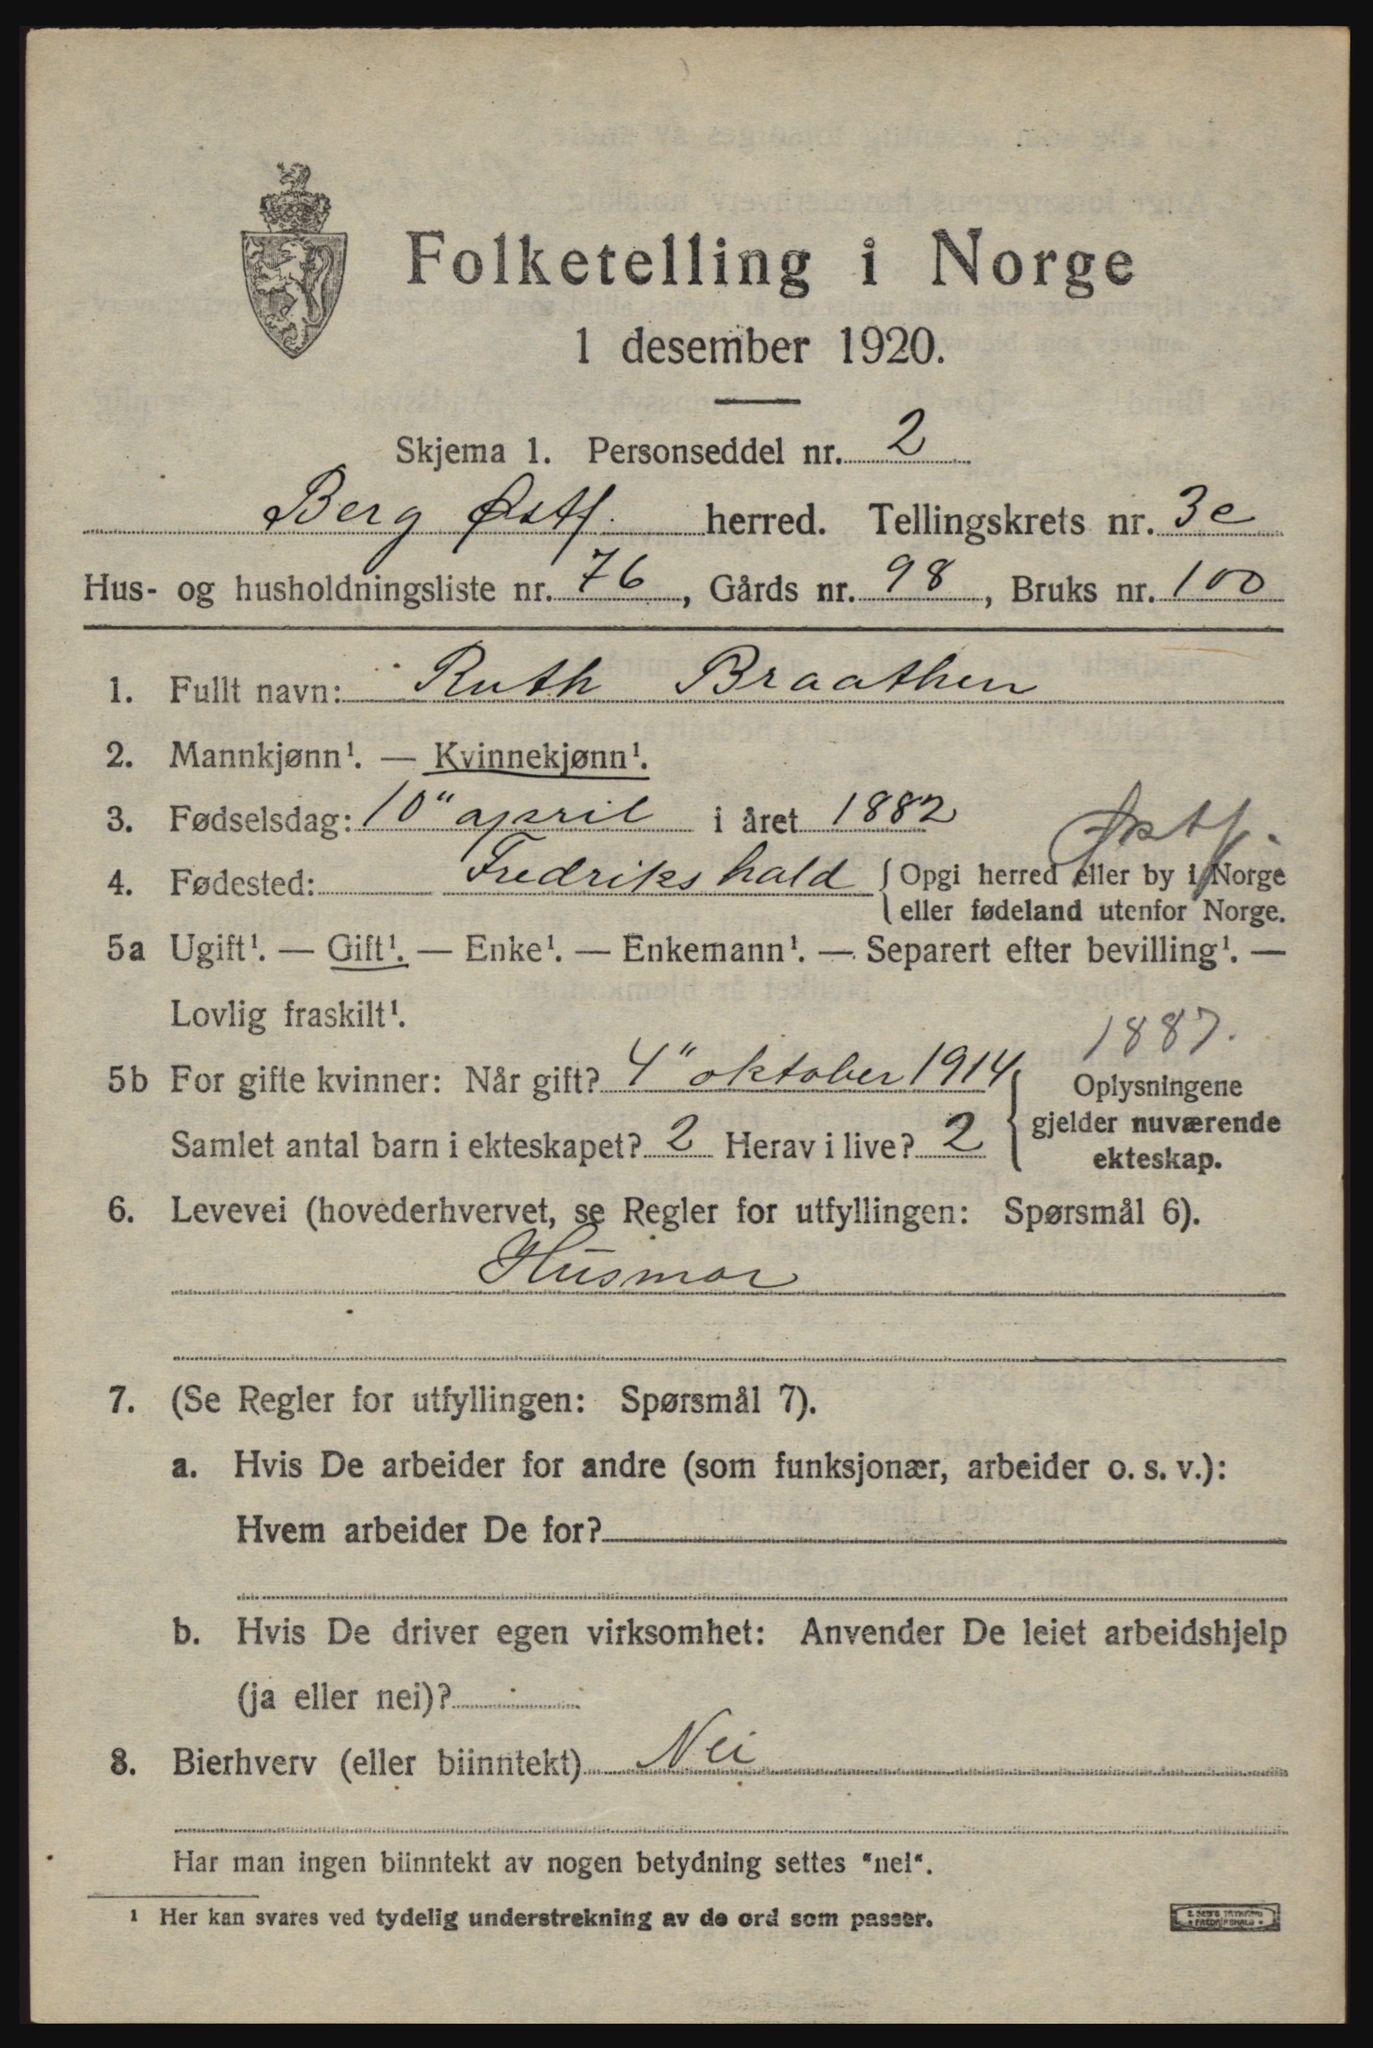 Folketelling i Norge
1 desember 1920.
Skjema 1. Personseddel nr. 2
Berg Østf. herred. Tellingskrets nr. 3e
Hus- og husholdningsliste nr. 76, Gårds nr. 98, Bruks nr. 100
1. Fullt navn: Ruth Braathen
2. Mannkjønn¹. — Kvinnekjønn¹.
3. Fødselsdag: 10" april i året 1882
Østf.
4. Fødested: Fredrikshald { Opgi herred eller by i Norge
eller fødeland utenfor Norge.
5a Ugift¹. — Gift¹. — Enke¹. — Enkemann¹. — Separert efter bevilling¹. —
Lovlig fraskilt¹.
1887.
5b For gifte kvinner: Når gift? 4" oktober 1914 { Oplysningene
gjelder nuværende
Samlet antal barn i ekteskapet? 2 Herav i live? 2
ekteskap.
6. Levevei (hovederhvervet, se Regler for utfyllingen: Spørsmål 6).
Husmor
7. (Se Regler for utfyllingen: Spørsmål 7).
a. Hvis De arbeider for andre (som funksjonær, arbeider o. s. v.):
Hvem arbeider De for?
b. Hvis De driver egen virksomhet: Anvender De leiet arbeidshjelp
(ja eller nei)?
8. Bierhverv (eller biinntekt) Nei
Har man ingen biinntekt av nogen betydning settes "nei".
¹ Her kan svares ved tydelig understrekning av de ord som passer.
FREDRIKSHALD